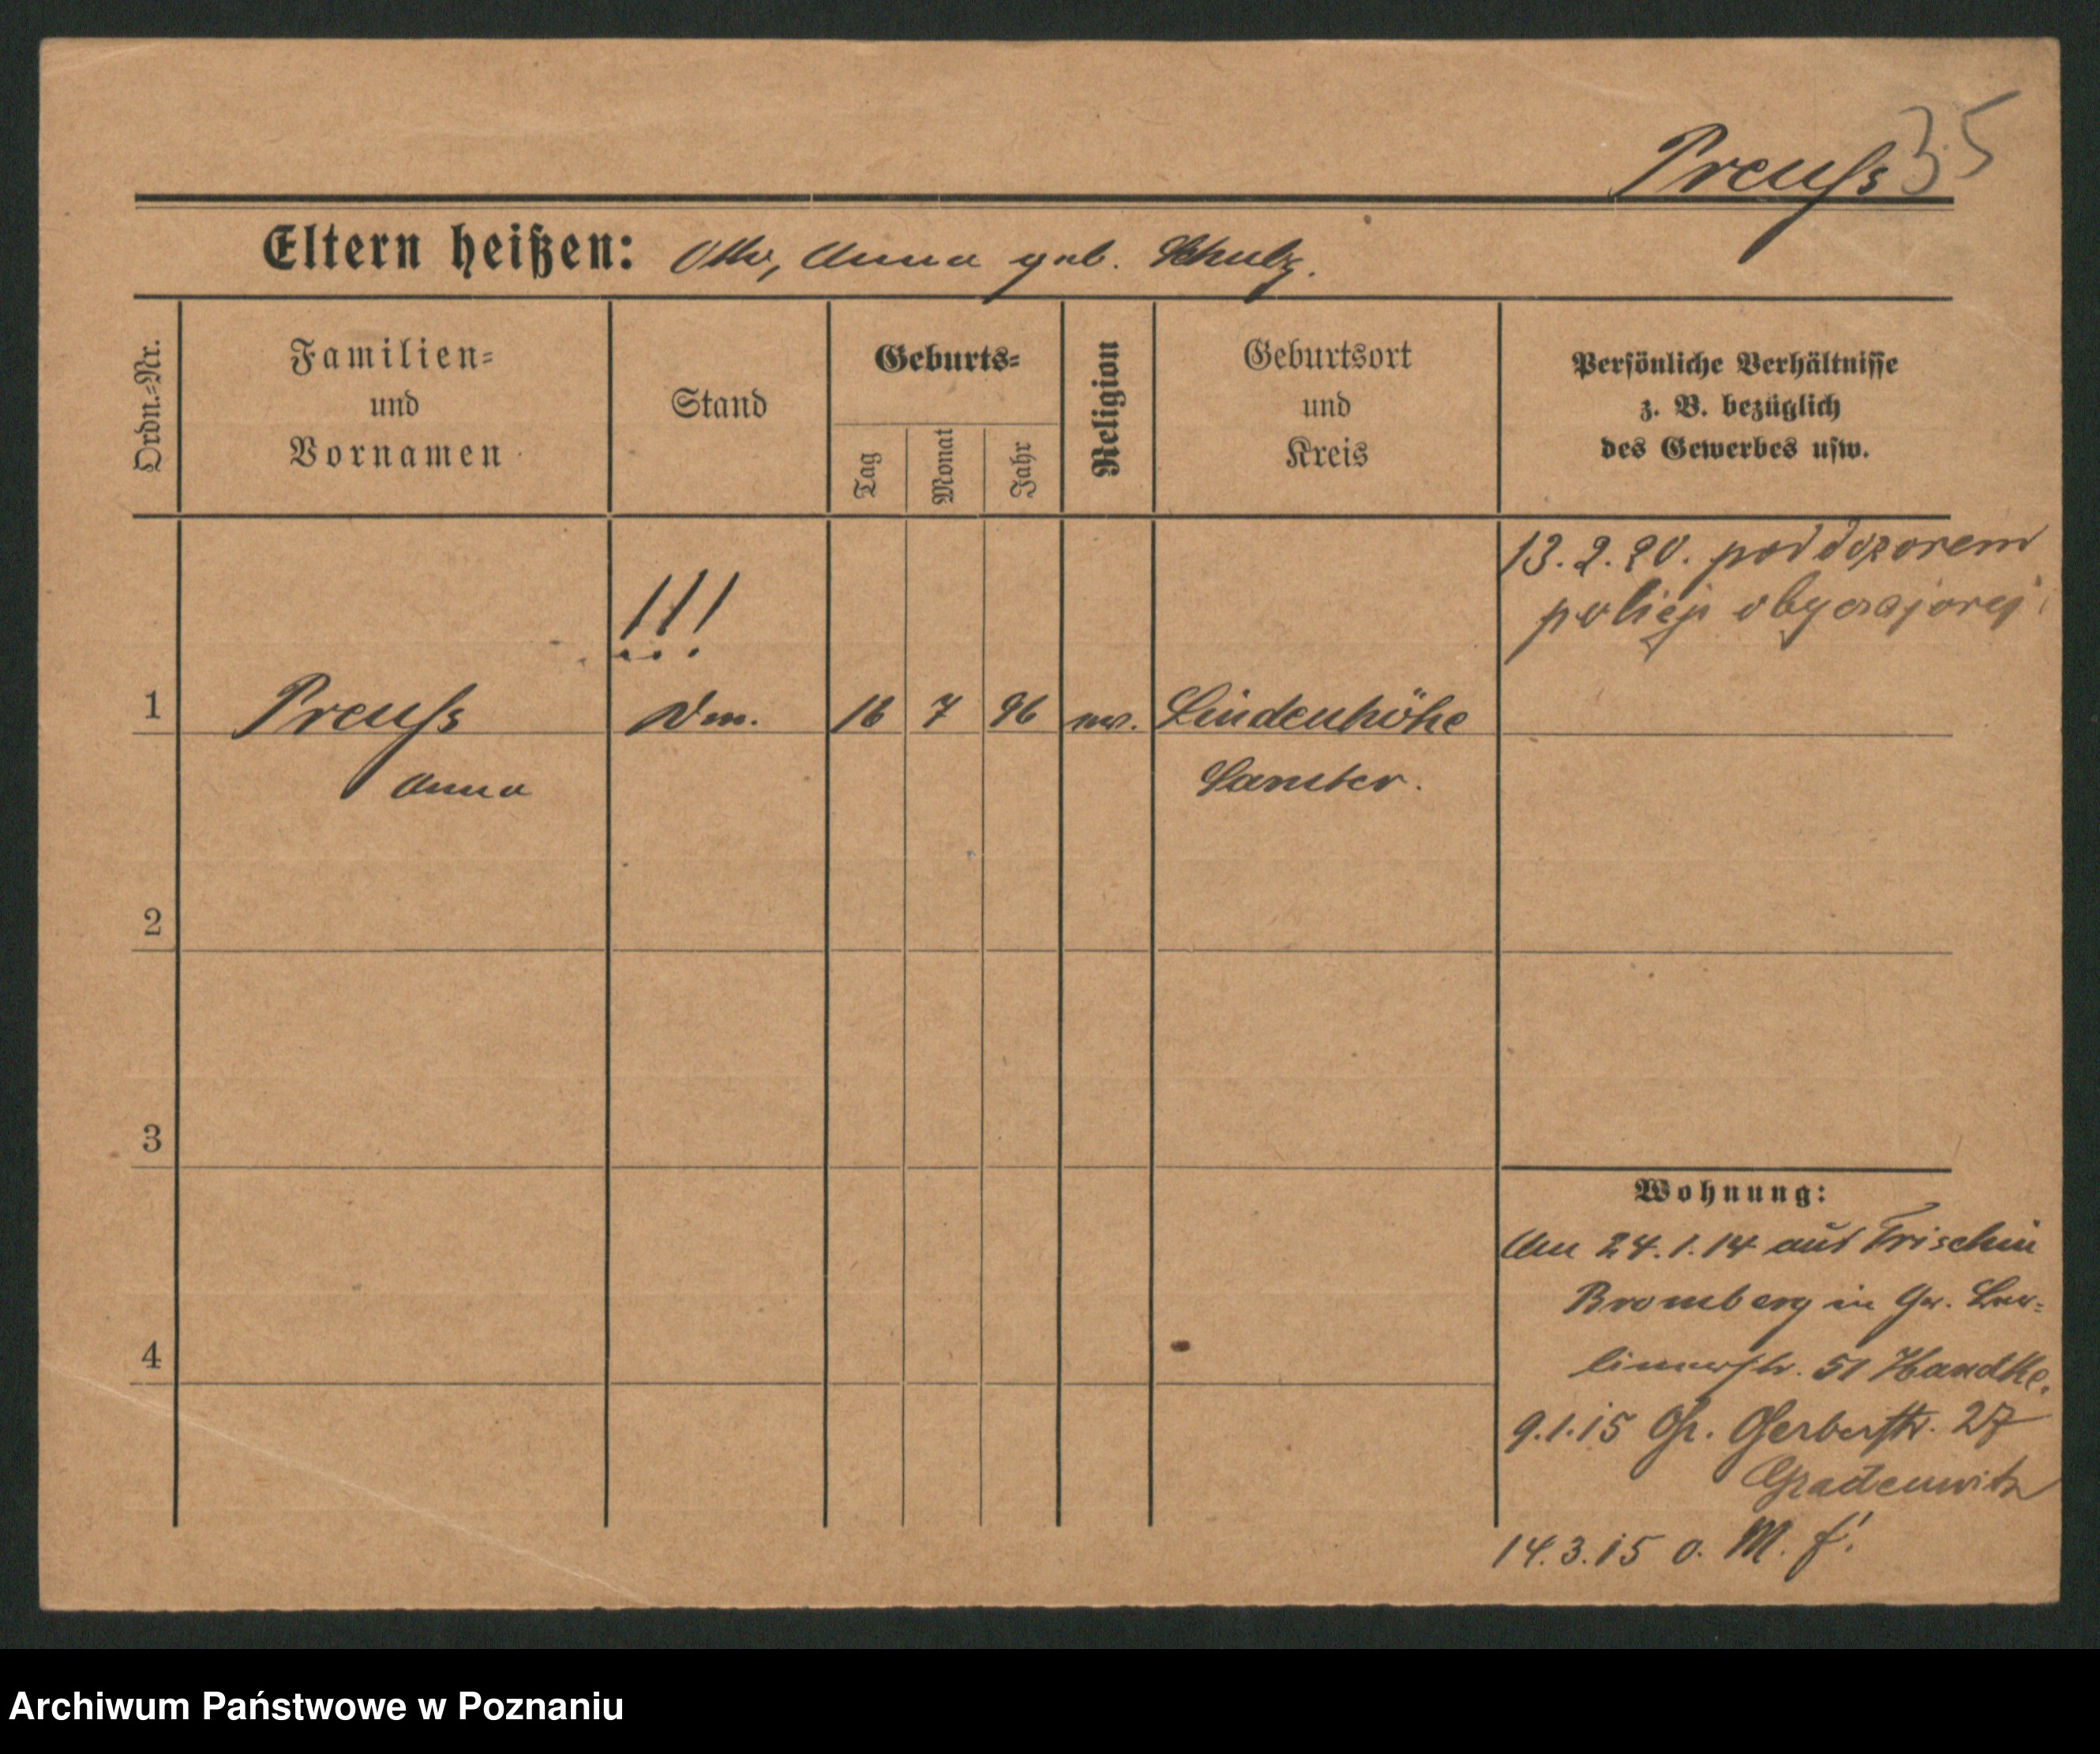 Preuſs 35
Eltern heißen: Otto, Anna geb. Schulz.
Ordn.-Nr.
Familien-
und
Vornamen
Stand
Geburts-
Tag
Monat
Jahr
Religion
Geburtsort
und
Kreis
Persönliche Verhältnisse
z. B. bezüglich
des Gewerbes usw.
13.2.20. pod dozorem
policji obyczajowej
!!!
1 Preuſs 16 7 96 Lindenhöhe
Anna Samter.
2
3
4
Wohnung:
Am 24.1.14 aus Trischin
Bromberg in
51 Handke.
9.1.15 Gr. Gerberstr. 27
Gradenwitz
14.3.15 o. M. f!
Archiwum Państwowe w Poznaniu